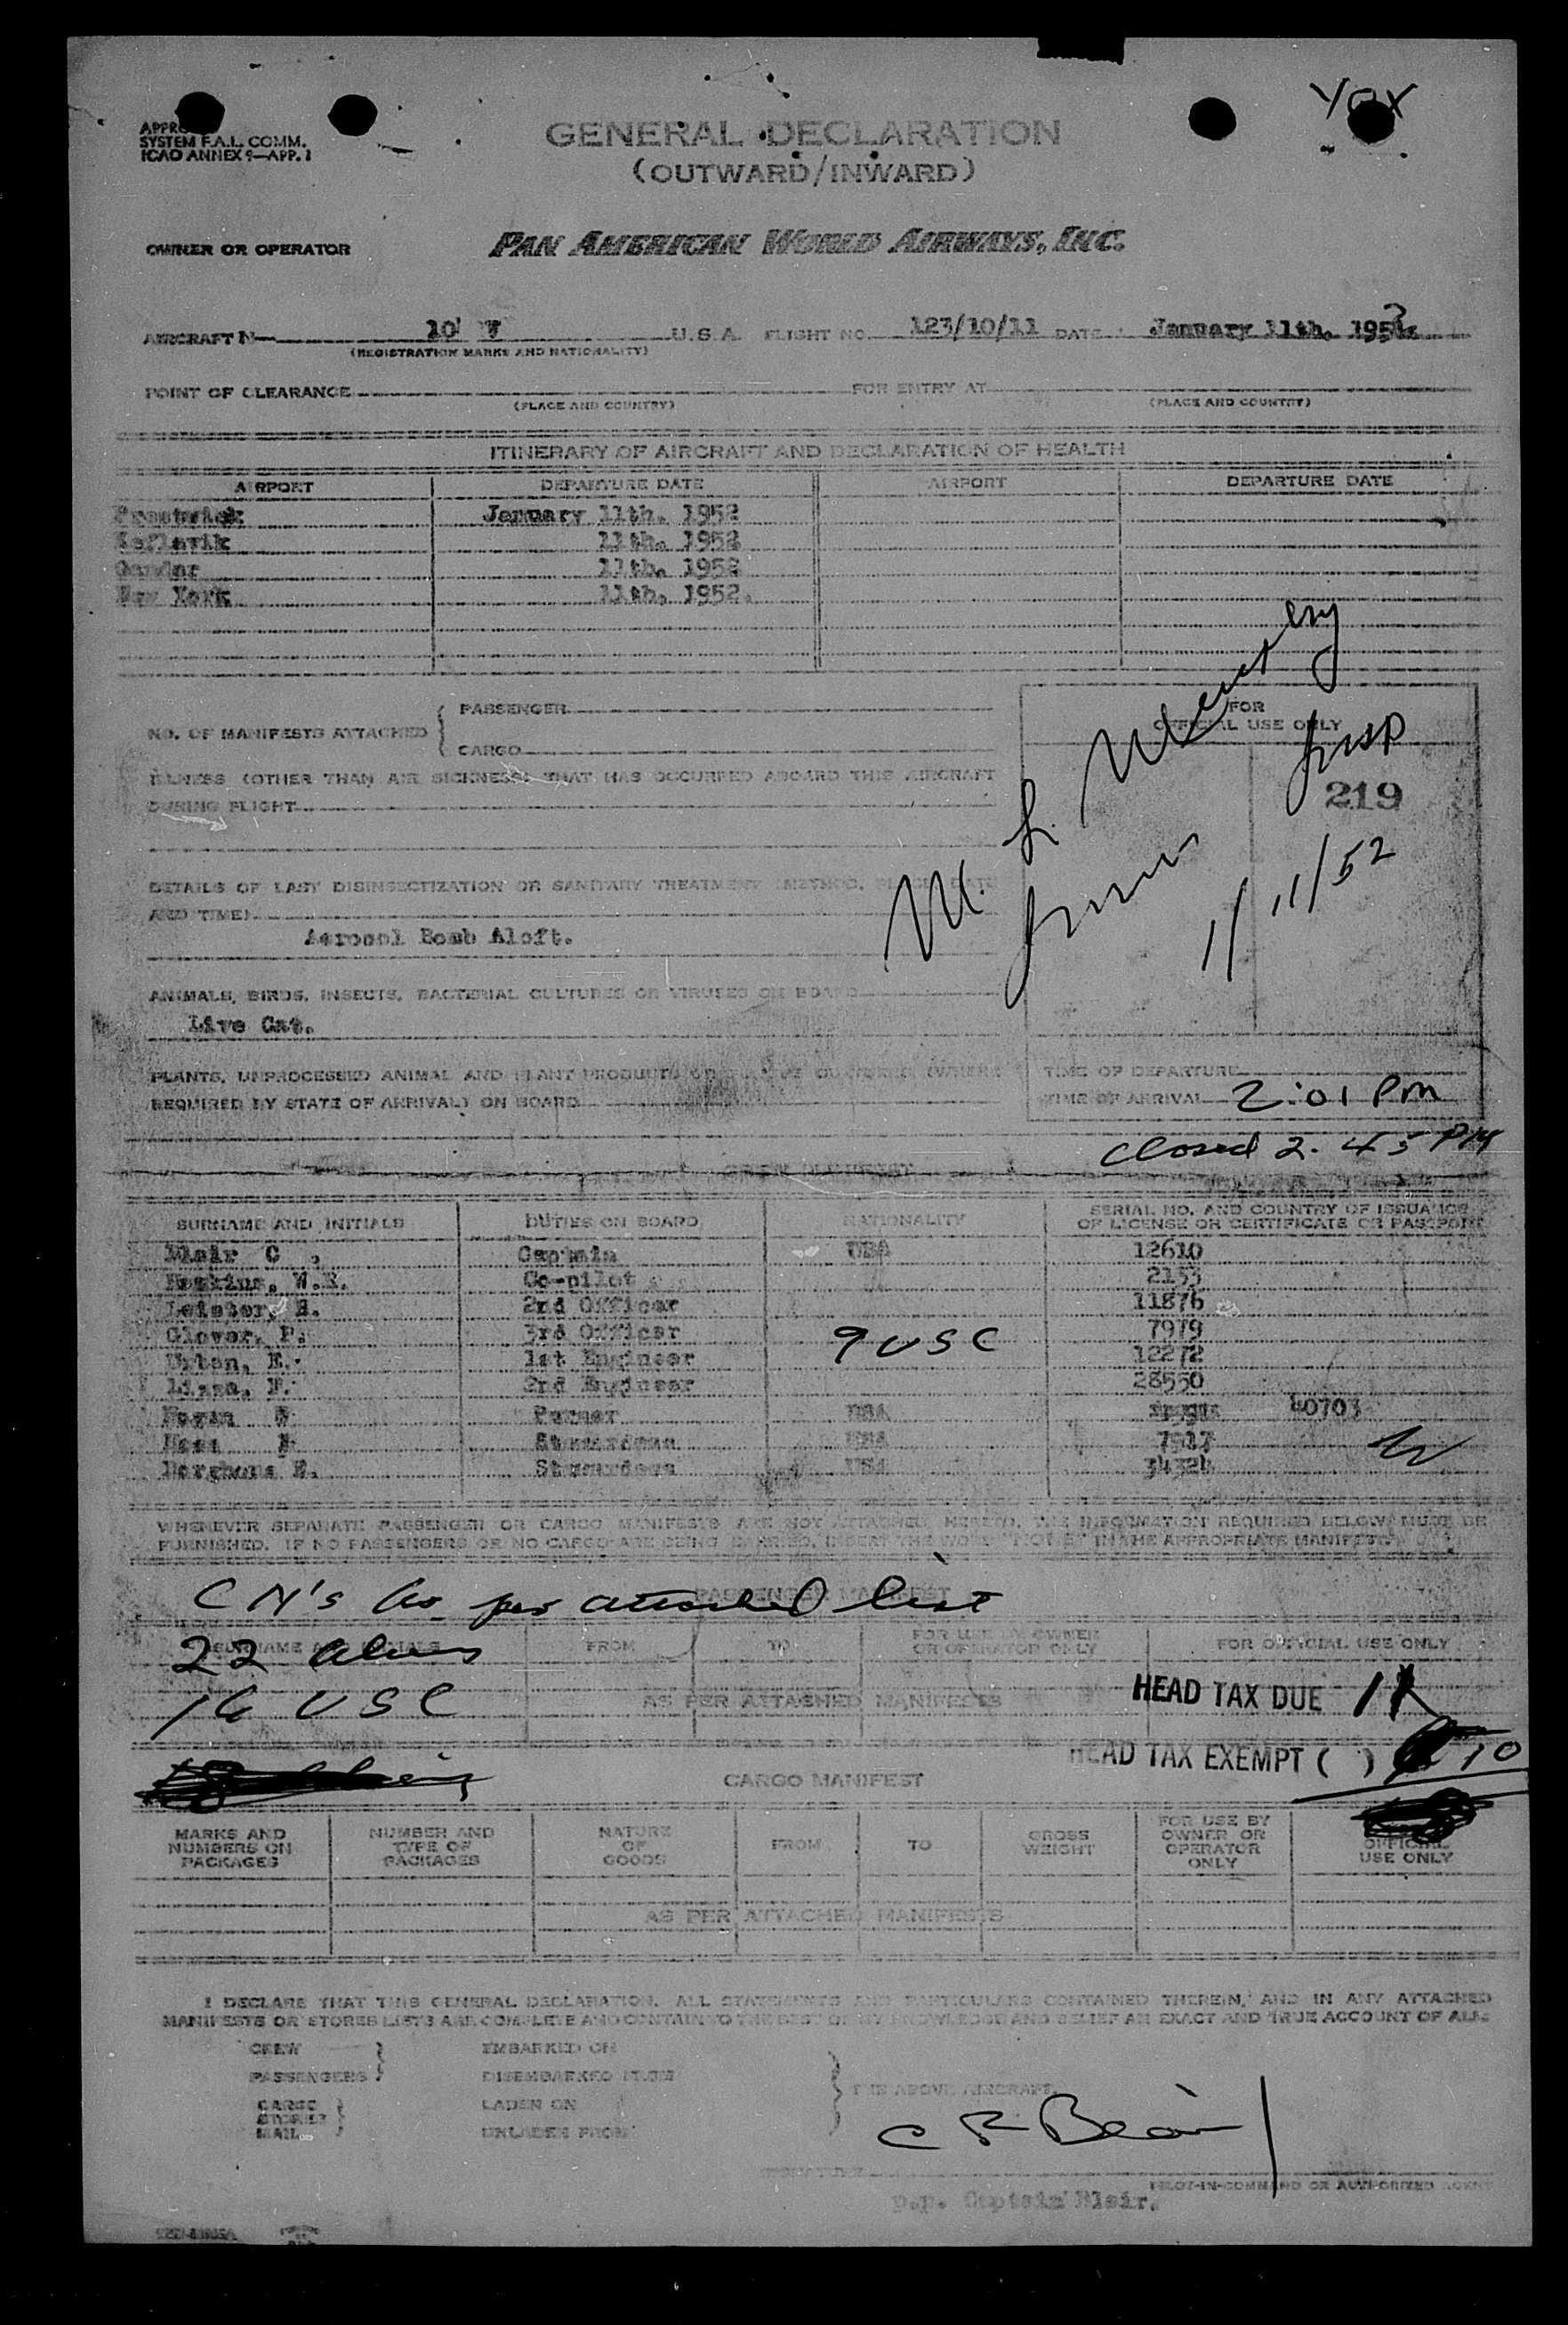 SYSTEM F.A.L. COMM.
ICAO ANNEX 9—APP. 1
GENERAL DECLARATION
(OUTWARD/INWARD)
OWNER OR OPERATOR PAN AMERICAN WORLD AIRWAYS, INC.
AIRCRAFT N— U.S.A. FLIGHT NO. 123/10/11 DATE January 11th. 1952
(REGISTRATION MARKS AND NATIONALITY)
POINT OF CLEARANCE FOR ENTRY AT
(PLACE AND COUNTRY) (PLACE AND COUNTRY)
ITINERARY OF AIRCRAFT AND DECLARATION OF HEALTH
AIRPORT DEPARTURE DATE AIRPORT DEPARTURE DATE
Prestwick January 11th. 1952
Keflavik 11th. 1952
Gander 11th. 1952
New York 11th. 1952.
PASSENGER
NO. OF MANIFESTS ATTACHED
CARGO
FOR
OFFICIAL USE ONLY
ILLNESS (OTHER THAN AIR SICKNESS) THAT HAS OCCURRED ABOARD THIS AIRCRAFT
DURING FLIGHT
219
1/11/52
DETAILS OF LAST DISINSECTIZATION OR SANITARY TREATMENT (METHOD, PLACE, DATE
AND TIME)
Aerosol Bomb Aloft.
ANIMALS, BIRDS, INSECTS, BACTERIAL CULTURES OR VIRUSES ON BOARD
Live Cat.
PLANTS, UNPROCESSED ANIMAL AND PLANT PRODUCTS (WHERE
REQUIRED BY STATE OF ARRIVAL) ON BOARD
TIME OF DEPARTURE
TIME OF ARRIVAL 2:01 PM
Closed 2.45 PM
CREW MANIFEST
SURNAME AND INITIALS DUTIES ON BOARD NATIONALITY SERIAL NO. AND COUNTRY OF ISSUANCE
OF LICENSE OR CERTIFICATE OR PASSPORT
Blair C Captain USA 12610
W.R. Co-pilot 2153
Leister, H. 2nd Officer 11876
Glover, P. 3rd Officer 7979
9 USC
Urban, E. 1st Engineer 12272
2nd Engineer 28550
Purser USA 40703
Stewardess USA 7917
Stewardess USA 34324
WHENEVER SEPARATE PASSENGER OR CARGO MANIFESTS ARE NOT ATTACHED HERETO, THE INFORMATION REQUIRED BELOW MUST BE
FURNISHED. IF NO PASSENGERS OR NO CARGO ARE BEING CARRIED, INSERT THE WORD "NONE" IN THE APPROPRIATE MANIFEST.
PASSENGER MANIFEST
CM's as per attached list
SURNAME AND INITIALS FROM TO FOR USE BY OWNER
OR OPERATOR ONLY FOR OFFICIAL USE ONLY
22 aliens
16 USC
AS PER ATTACHED MANIFESTS
HEAD TAX DUE
HEAD TAX EXEMPT ( ) 10
CARGO MANIFEST
MARKS AND
NUMBERS ON
PACKAGES
NUMBER AND
TYPE OF
PACKAGES
NATURE
OF
GOODS
FROM
TO
GROSS
WEIGHT
FOR USE BY
OWNER OR
OPERATOR
ONLY
OFFICIAL
USE ONLY
AS PER ATTACHED MANIFESTS
I DECLARE THAT THIS GENERAL DECLARATION, ALL STATEMENTS AND PARTICULARS CONTAINED THEREIN, AND IN ANY ATTACHED
MANIFESTS OR STORES LISTS ARE COMPLETE AND CONTAIN TO THE BEST OF MY KNOWLEDGE AND BELIEF AN EXACT AND TRUE ACCOUNT OF ALL
CREW EMBARKED ON
PASSENGERS DISEMBARKED FROM
THE ABOVE AIRCRAFT.
CARGO LADEN ON
STORES
MAIL UNLADEN FROM
C R Blair
SIGNATURE
PILOT-IN-COMMAND OR AUTHORIZED AGENT
p.p. Captain Blair.